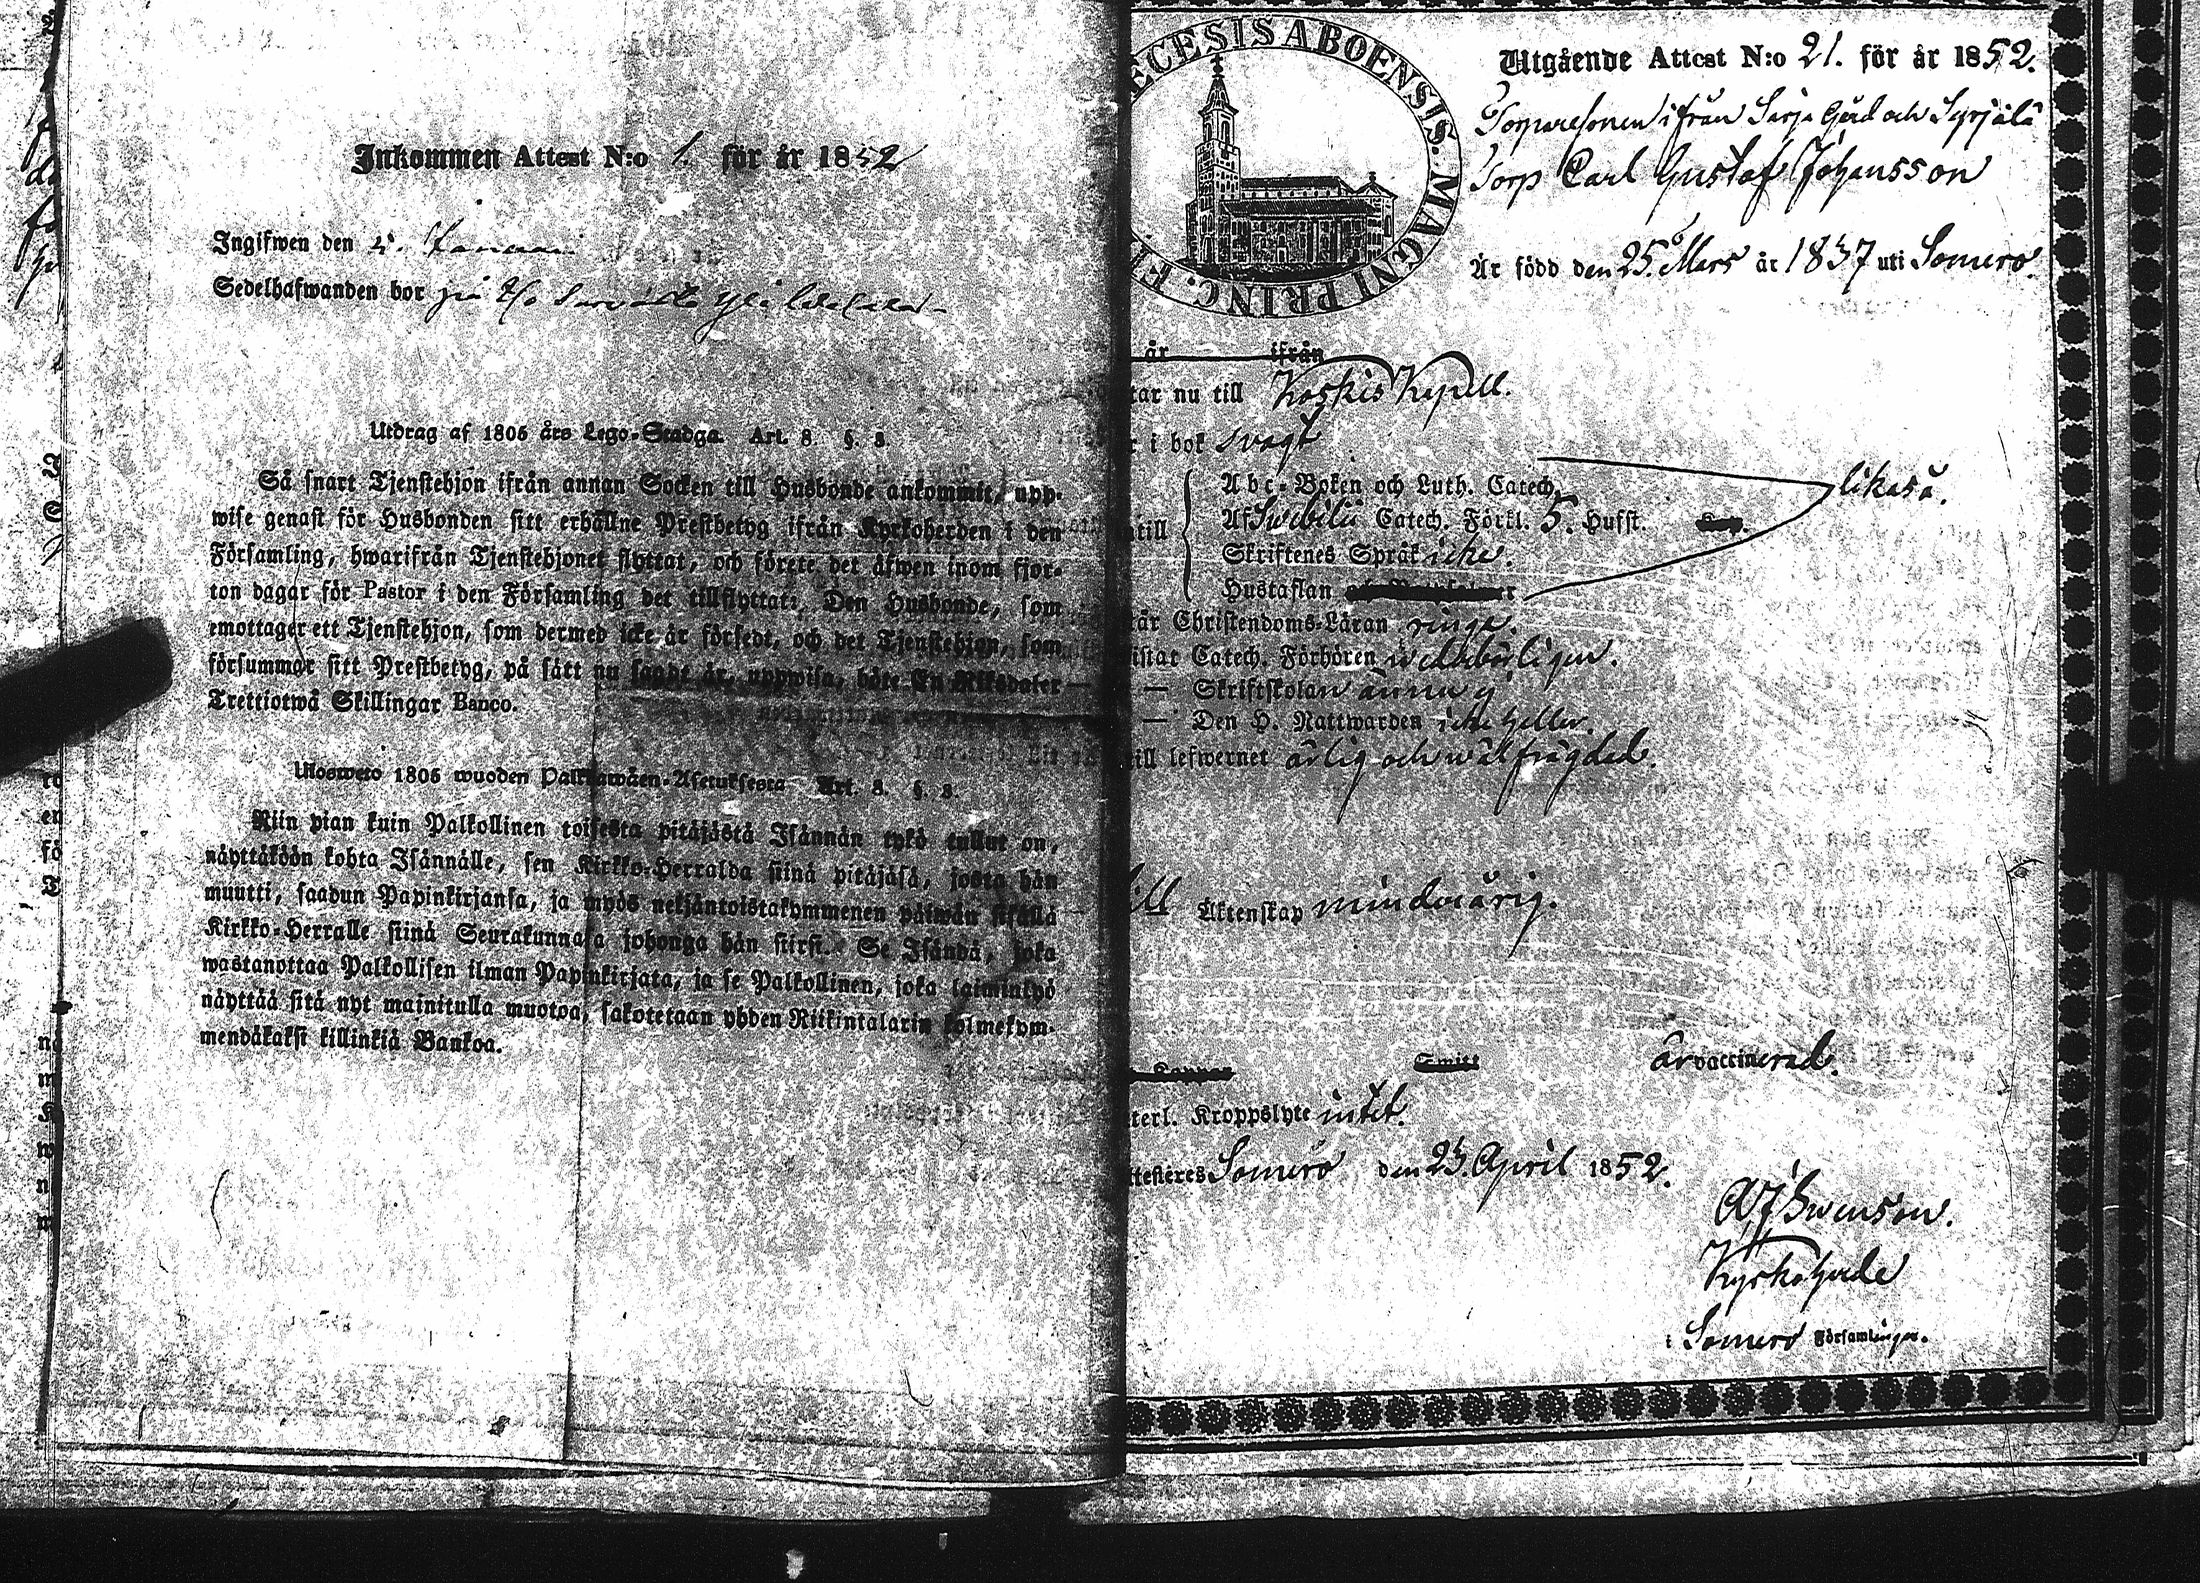 Inkommen Attest N:o 1. för år 1852
Ingifwen den 5. Januari
Sedelhafwanden bor på
Utdrag af 1805 års Lego-Stadga. Art. 8. §. 8.
Så snart Tjenstehjon ifrån annan Socken till Husbonde ankommit, upp-
wise genast för Husbonden sitt erhållne Prestbetyg ifrån Kyrkoherden i den
Församling, hwarifrån Tjenstehjonet flyttat, och förete det äfwen inom fjor-
ton dagar för Pastor i den Församling det tillflyttat. Den Husbonde, som
emottager ett Tjenstehjon, som dermed icke är försedt, och det Tjenstehjon, som
försummar sitt Prestbetyg, på sätt nu sagdt är, uppwisa, böte En Riksdaler
Trettiotwå Skillingar Banco.
Ulosweto 1805 wuoden Palkkawäen-Asetuksesta Art. 8. §. 8.
Niin pian kuin Palkollinen toisesta pitäjästä Isännän tykö tullut on,
näyttäköön kohta Isännälle, sen Kirkko-Herralda siinä pitäjäsä, josta hän
muutti, saadun Papinkirjansa, ja myös neljäntoistakymmenen päiwän sisällä
Kirkko-Herralle siinä Seurakunnasa johonga hän siirsi. Se Isändä, joka
wastanottaa Palkollisen ilman Papinkirjata, ja se Palkollinen, joka laiminlyö
näyttää sitä nyt mainitulla muotoa, sakotetaan yhden Riikintalarin kolmekym-
mendäkaksi killinkiä Bankoa.
ECESIS ABOENSIS. MAGNI PRINC. F
Utgående Attest N:o 21. för år 1852.
Torparesonen ifrån Sarja Gård och Syrjälä
Torp Carl Gustaf Johansson
Är född den 25. Mars år 1837 uti Somero.
år ifrån
tar nu till Koskis Kapell.
r i bok svagt
Abc-Boken och Luth. Catech.
likaså.
ntill Af Swebilii Catech. Förkl. 5. Hufst.
Skriftenes Språk icke.
Hustaflan
tår Christendoms-Läran ringa.
istat Catech. Förhören wederbörligen.
— Skriftskolan ännu ej
— Den H. Nattwarden icke heller.
till lefwernet ärlig och wälfrägdad.
till Äktenskap minderårig.
Koppor Smitt är vaccinerad.
terl. Kroppslyte intet.
ttesteres Somero den 23. April 1852.
Swenson.
Kyrkoherde
i Somero Församlingar.